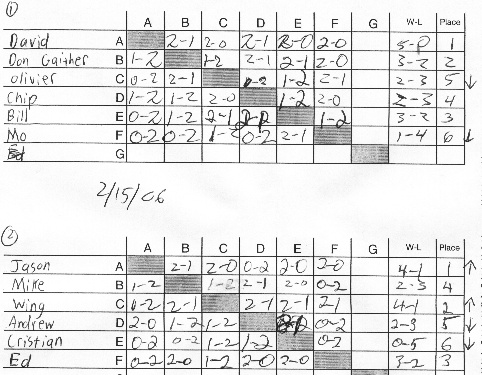 ①
A B C D E F G W-L Place
David A 2-1 2-0 2-1 2-0 2-0 5-0 1
Don Gaither B 1-2 1-2 2-1 2-1 2-0 3-2 2
olivier C 0-2 2-1 0-2 1-2 2-1 2-3 5 ↓
Chip D 1-2 1-2 2-0 1-2 2-0 2-3 4
Bill E 0-2 1-2 2-1 1-2 3-2 3
Mo F 0-2 0-2 1-2 0-2 2-1 1-4 6 ↓
G
2/15/06
②
A B C D E F G W-L Place
Jason A 2-1 2-0 0-2 2-0 2-0 4-1 1 ↑
Mike B 1-2 1-2 2-1 2-0 0-2 2-3 4
Wing C 0-2 2-1 2-1 2-1 2-1 4-1 2 ↑
Andrew D 2-0 1-2 1-2 0-2 2-3 5 ↓
Cristian E 0-2 0-2 1-2 1-2 0-2 0-5 6 ↓
Ed F 0-2 2-0 1-2 2-0 2-0 3-2 3